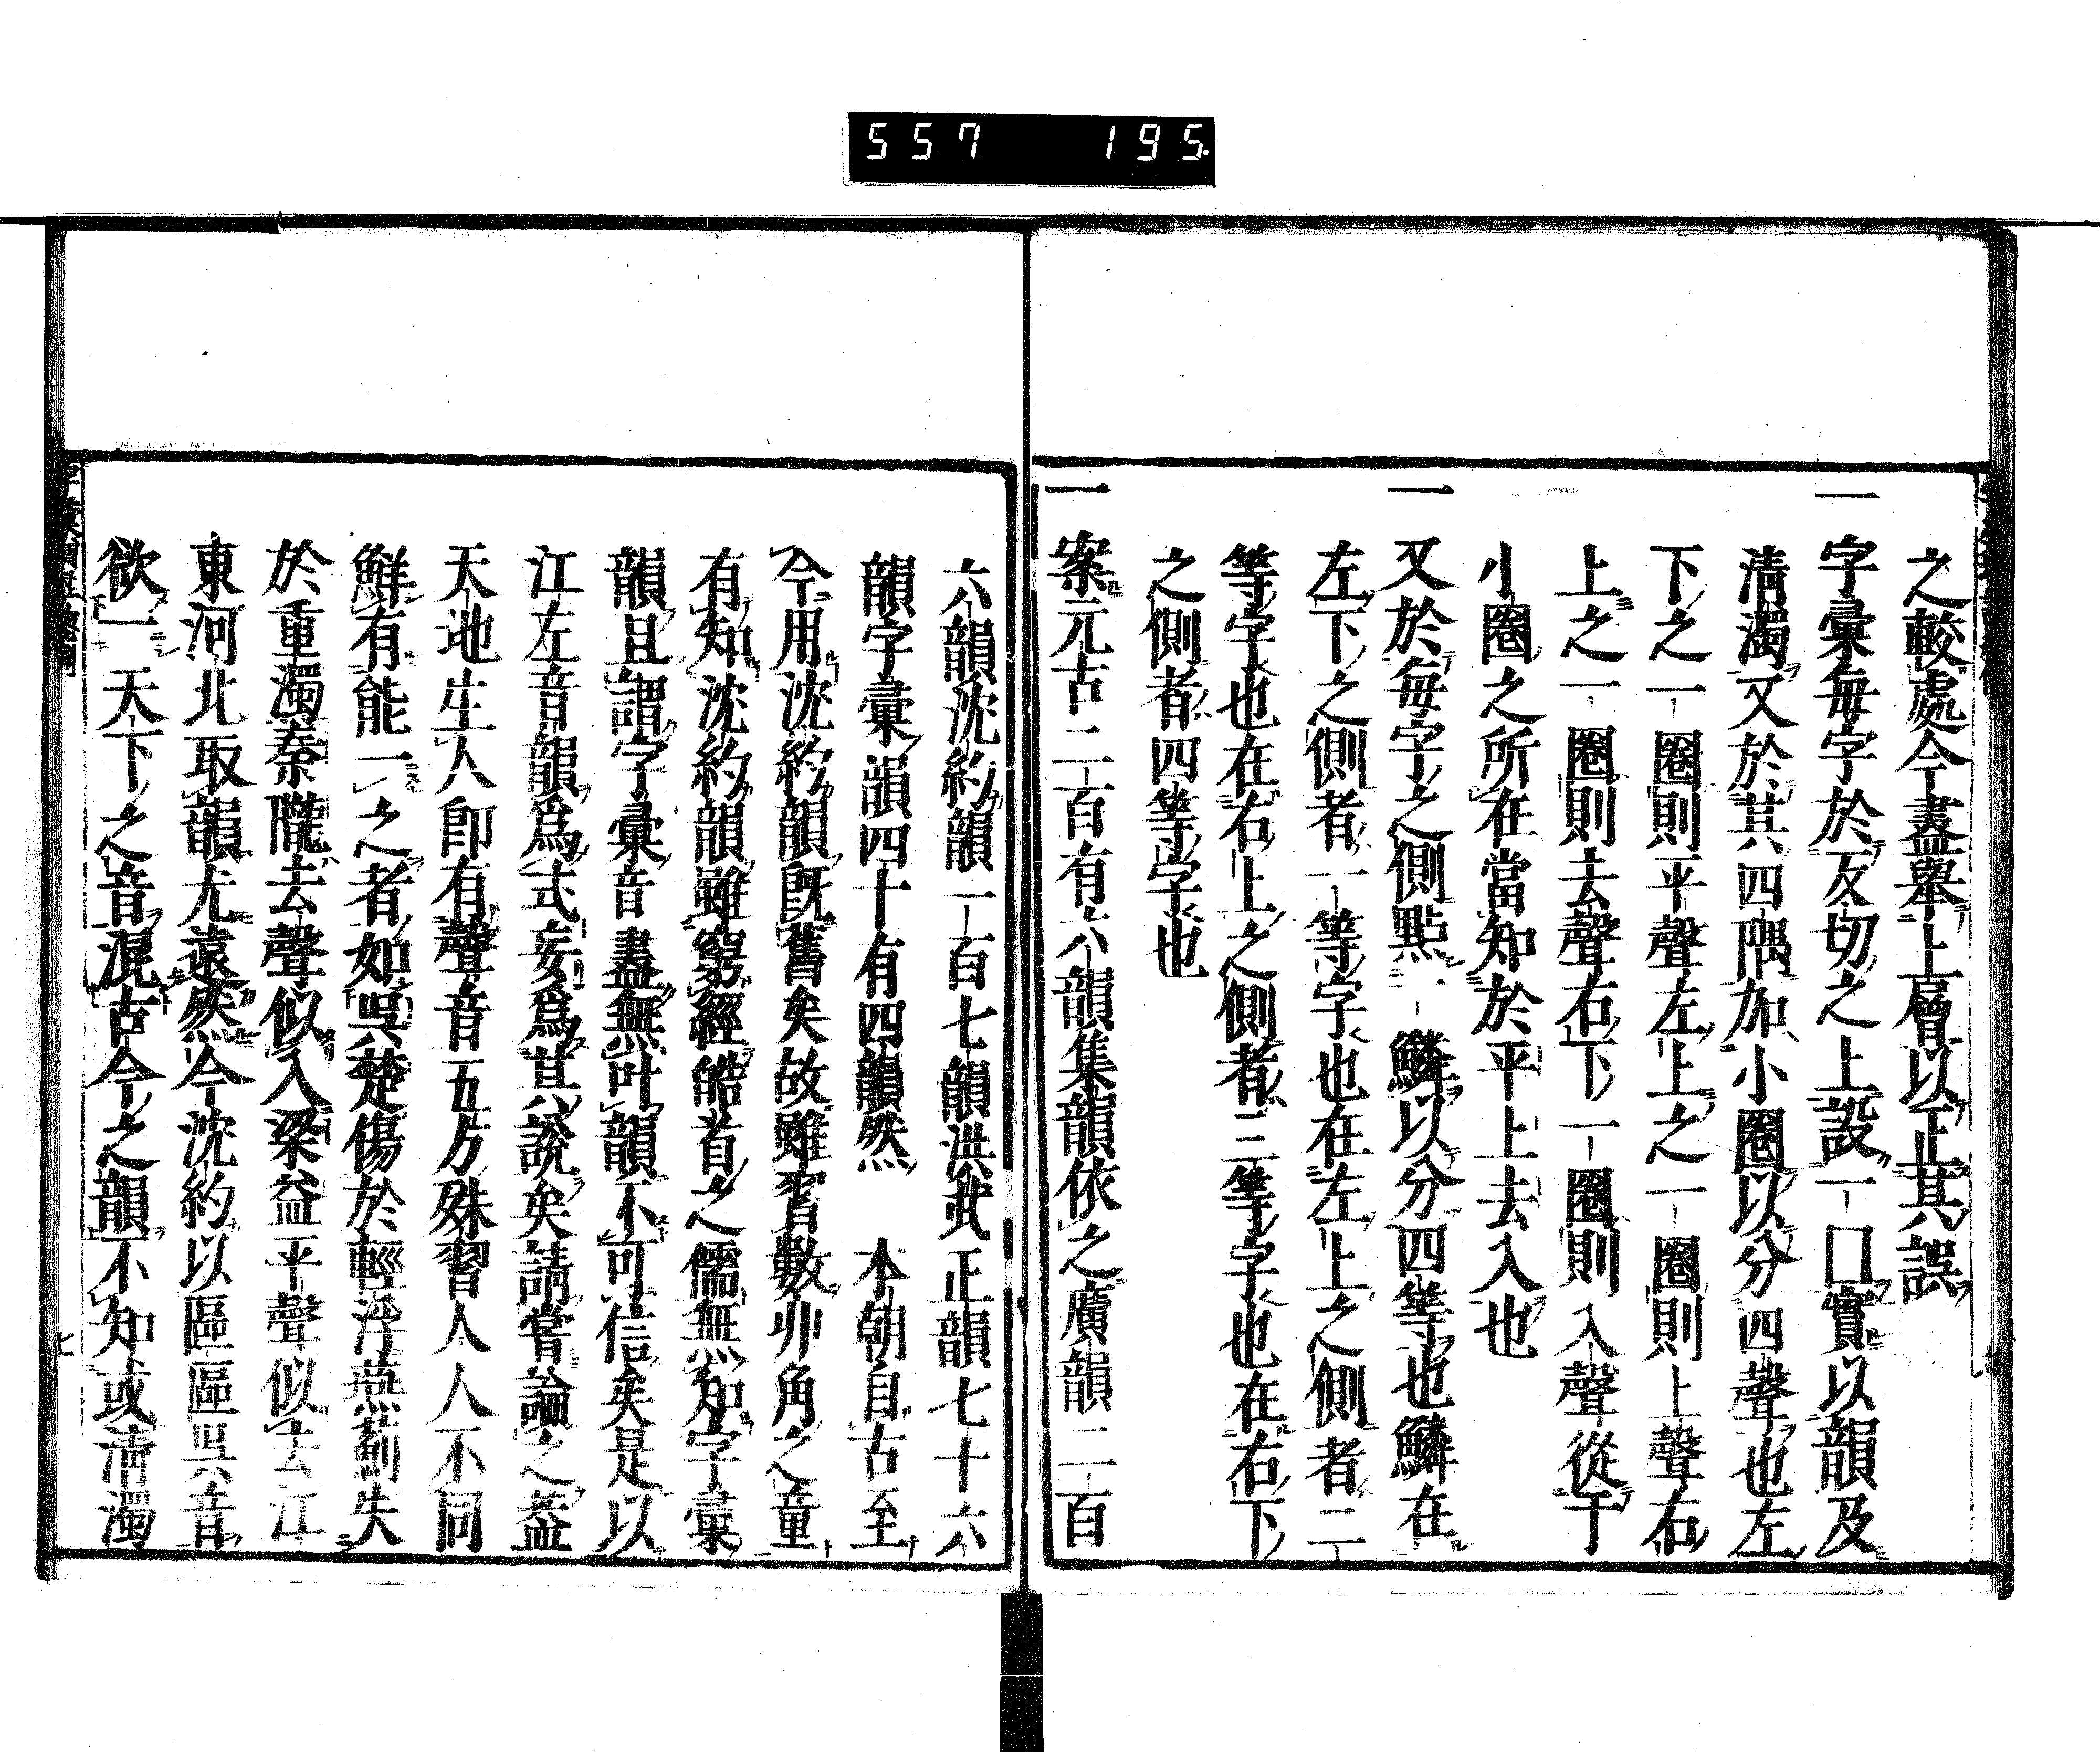 557 195.
之較處今盡舉上層以正其誤
一字彙每字於反切之上設一口實以韻及
淸濁又於其四隅加小圈以分四聲也左
下之一圈則平聲左上之一圈則上聲右
上之一圈則去聲右下一圈則入聲從于
小圈之所在當知於平上去入也
一又於每字之側點一鱗以分四等也鱗在
左下之側者一等字也在左上之側者二
等字也在右上之側者三等字也在右下
之側者四等字也
一案元古二百有六韻集韻依之廣韻二百
六韻沈約韻一百七韻洪武正韻七十六
韻字彙韻四十有四韻然 本朝自古至
今用沈約韻旣舊矣故雖習數丱角之童
有知沈約韻雖窮經皓首之儒無知字彙
韻且謂字彙音盡無叶韻不可信矣是以
江左音韻爲式妄爲其說矣請嘗論之蓋
天地生人卽有聲音五方殊習人人不同
鮮有能一之者如吳楚傷於輕浮燕薊失
於重濁秦隴去聲似入梁益平聲似去江
東河北取韻尤遠然今沈約以區區吳音
欲一天下之音混古今之韻不知或淸濁
七